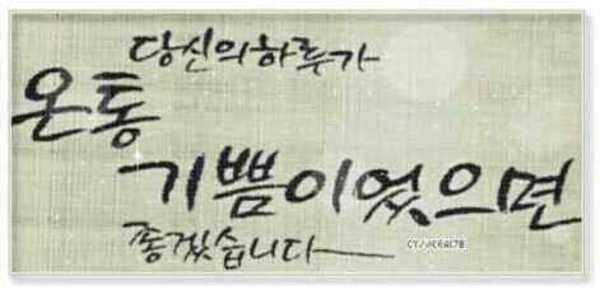 당신의하루가
온통
기쁨이었으면
좋겠습니다